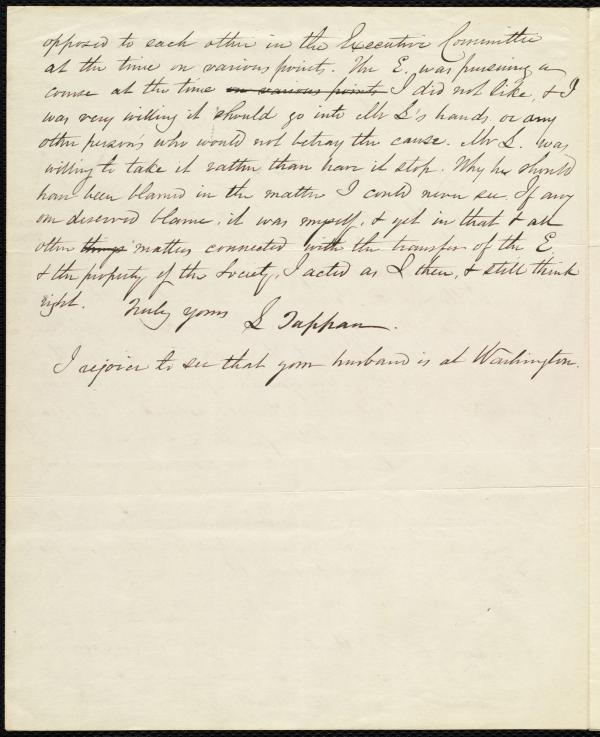 opposed to each other in the Executive Committee
at the time on various points. The E. was pursuing a
course at the time on various points I did not like, & I
was very willing it should go into Mr L's hands, or any
other person's who would not betray the cause. Mr L. was
willing to take it rather than have it stop. Why he should
have been blamed in the matter I could never see. If any
one deserved blame, it was myself, & yet in that & all
other things matters connected with the transfer of the E.
& the property of the Society, I acted as I then, & still think
right. Truly yours
L Tappan.
I rejoice to see that your husband is at Washington.